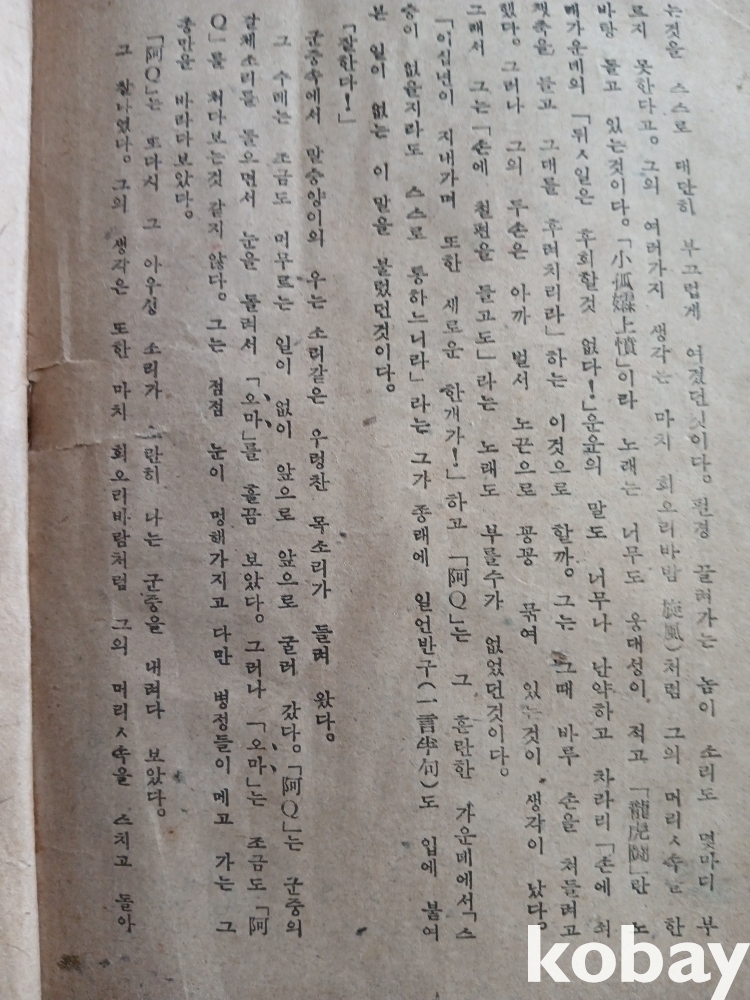 는것을 스스로 대단히 부끄럽게 여겼던것이다。 필경 끌려가는 놈이 소리도 몇마디 부
르지 못한다고。 그의 여러가지 생각는 마치 회오리바람 旋風)처럼 그의 머리ㅅ속을 한
바탕 돌고 있는것이다。「小孤孀上墳」이라 노래는 너무도 웅대성이 적고 「龍虎鬪」란 노
래가운데의 「뉘ㅅ일은 후회할것 없다!」운운의 말도 너무나 난약하고 차라리 「손에 쇠
챗죽을 들고 그대를 후려치리라」하는 이것으로 할까。 그는 그때 바루 손을 쳐들려고
했다。 그러나 그의 두손은 아까 벌서 노끈으로 꽁꽁 묶여 있는것이 생각이 났다。
그래서 그는「손에 철편을 들고도」라는 노래도 부를수가 없었던것이다。
「이십년이 지내가며 또한 새로운 한개가!」하고 「阿Q」는 그 혼란한 가운데에서「스
승이 없을지라도 스스로 통하느니라」라는 그가 종래에 일언반구(一言半句)도 입에 붙여
본 일이 없는 이 말을 불렀던것이다。
「잘한다!」
군중속에서 말승양이의 우는 소리같은 우렁찬 목소리가 들려 왔다。
그 수레는 조금도 머무르는 일이 없이 앞으로 앞으로 굴러 갔다。「阿Q」는 군중의
갈체소리를 들으면서 눈을 돌려서 「오마」를 흘끔 보았다。 그러나 「오마」는 조금도 「阿
Q」를 쳐다보는것 같지 않다。 그는 점점 눈이 멍해가지고 다만 병정들이 메고 가는 그
총만을 바라다보았다。
「阿Q」는 또다시 그 아우성 소리가 소란히 나는 군중을 내려다 보았다。
그 찰나였다。 그의 생각은 또한 마치 회오리바람처럼 그의 머리ㅅ속을 스치고 돌아
kobay